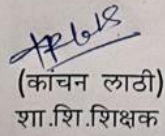 (कांचन लाठी)
शा.शि.शिक्षक